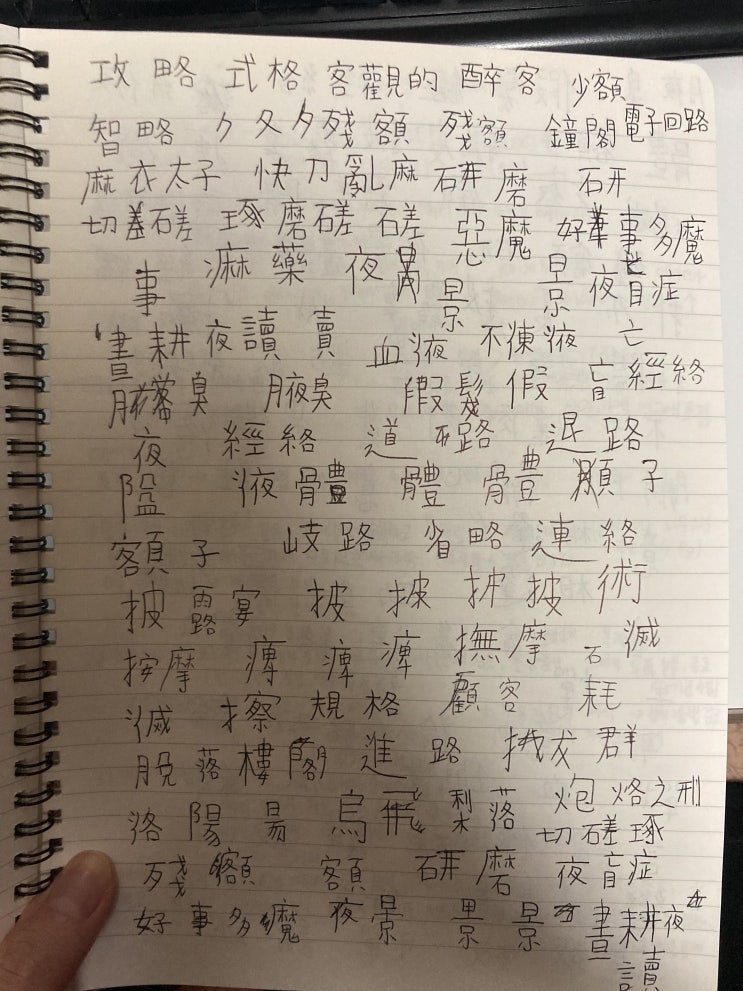 攻略 式格 客觀的 醉客 少額
智略 タ又タ殘額 殘額 鐘閣 電子回路
麻衣太子 快刀亂麻 研磨 研
切磋 琢磨磋 磋 惡魔 好事多魔
事 痲藥 夜景 景 景 夜盲症
晝耕夜讀 賣 血液 不凍液 亡
臭 腋臭 假髮 假 盲 經絡
夜 經絡 道路 退路
液 骨豊 體 骨豊 子
額子 岐路 省略 連絡
披露宴 披 披 披 術
按摩 撫摩 石 滅
滅 擦 規格 顧客 耗
脫落 樓閣 進路 拔群
洛陽 易 烏飛梨落 炮烙之刑
切磋琢
殘額 額 研磨 夜盲症
好事多魔 夜景 景 景 晝耕夜
讀